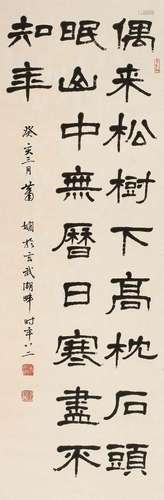 偶来松樹下高枕石頭
眠山中無曆日寒盡不
知年
癸亥三月蕭嫻於玄武湖畔时年八二